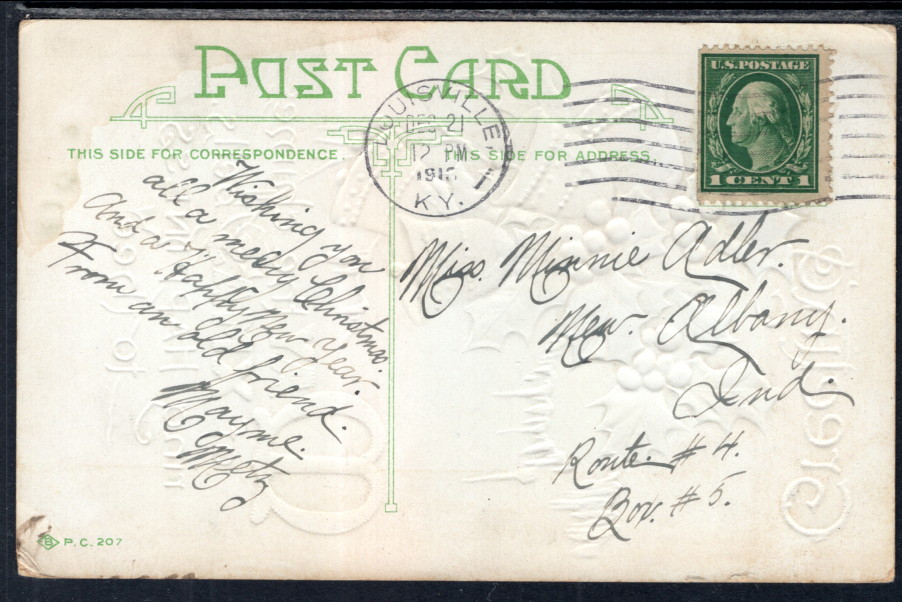 POST CARD
THIS SIDE FOR CORRESPONDENCE.
THIS SIDE FOR ADDRESS.
LOUISVILLE,
DEC 21
12 PM
191
KY.
U.S. POSTAGE
1 CENT 1
Wishing you
all a merry Christmas.
And a Happy New Year.
From an old friend.
Mayme.
Metz
Miss. Minnie Adler.
New. Albany.
Ind.
Route. # 4.
Box. # 5.
B P.C. 207